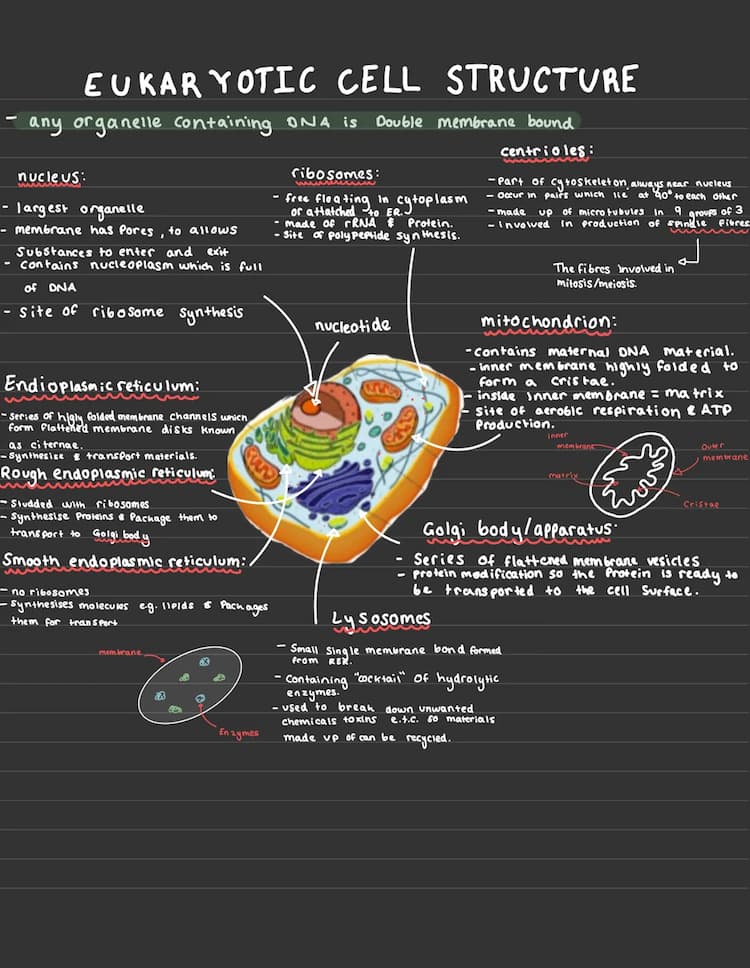 EUKARYOTIC CELL STRUCTURE
- any organelle containing DNA is Double membrane bound
nucleus:
- largest organelle
- membrane has Pores, to allows
Substances to enter and exit
- contains nucleoplasm which is full
of DNA
- site of ribosome synthesis
ribosomes:
- free floating in cytoplasm
or attatched to ER.
- made of rRNA & Protein.
- Site of polypeptide synthesis.
centrioles:
- Part of cytoskeleton, always near nucleus
- occur in pairs which lie at 90° to each other
- made up of microtubules in 9 groups of 3
- Involved in production of spindle fibres
The fibres involved in
mitosis/meiosis.
nucleotide
mitochondrion:
- contains maternal DNA material.
- inner membrane highly folded to
form a Cristae.
- inside inner membrane = matrix
- site of aerobic respiration & ATP
Production.
inner
membrane
outer
membrane
matrix
Cristae
Endioplasmic reticulum:
- Series of higly folded membrane channels which
form flattened membrane disks known
as citernae.
- Synthesise & transport materials.
Rough endoplasmic reticulum:
- Studded with ribosomes
- Synthesise Proteins & Package them to
transport to Golgi body
Smooth endoplasmic reticulum:
- no ribosomes
- Synthesises molecules e.g. lipids & Packages
them for transport
Golgi body/apparatus:
- Series of flattened membrane vesicles
- protein modification so the Protein is ready to
be transported to the cell Surface.
Lysosomes
- Small Single membrane bond formed
from RER.
- Containing "cocktail" of hydrolytic
enzymes.
- used to break down unwanted
chemicals toxins e.t.c. so materials
made up of can be recycled.
membrane
Enzymes